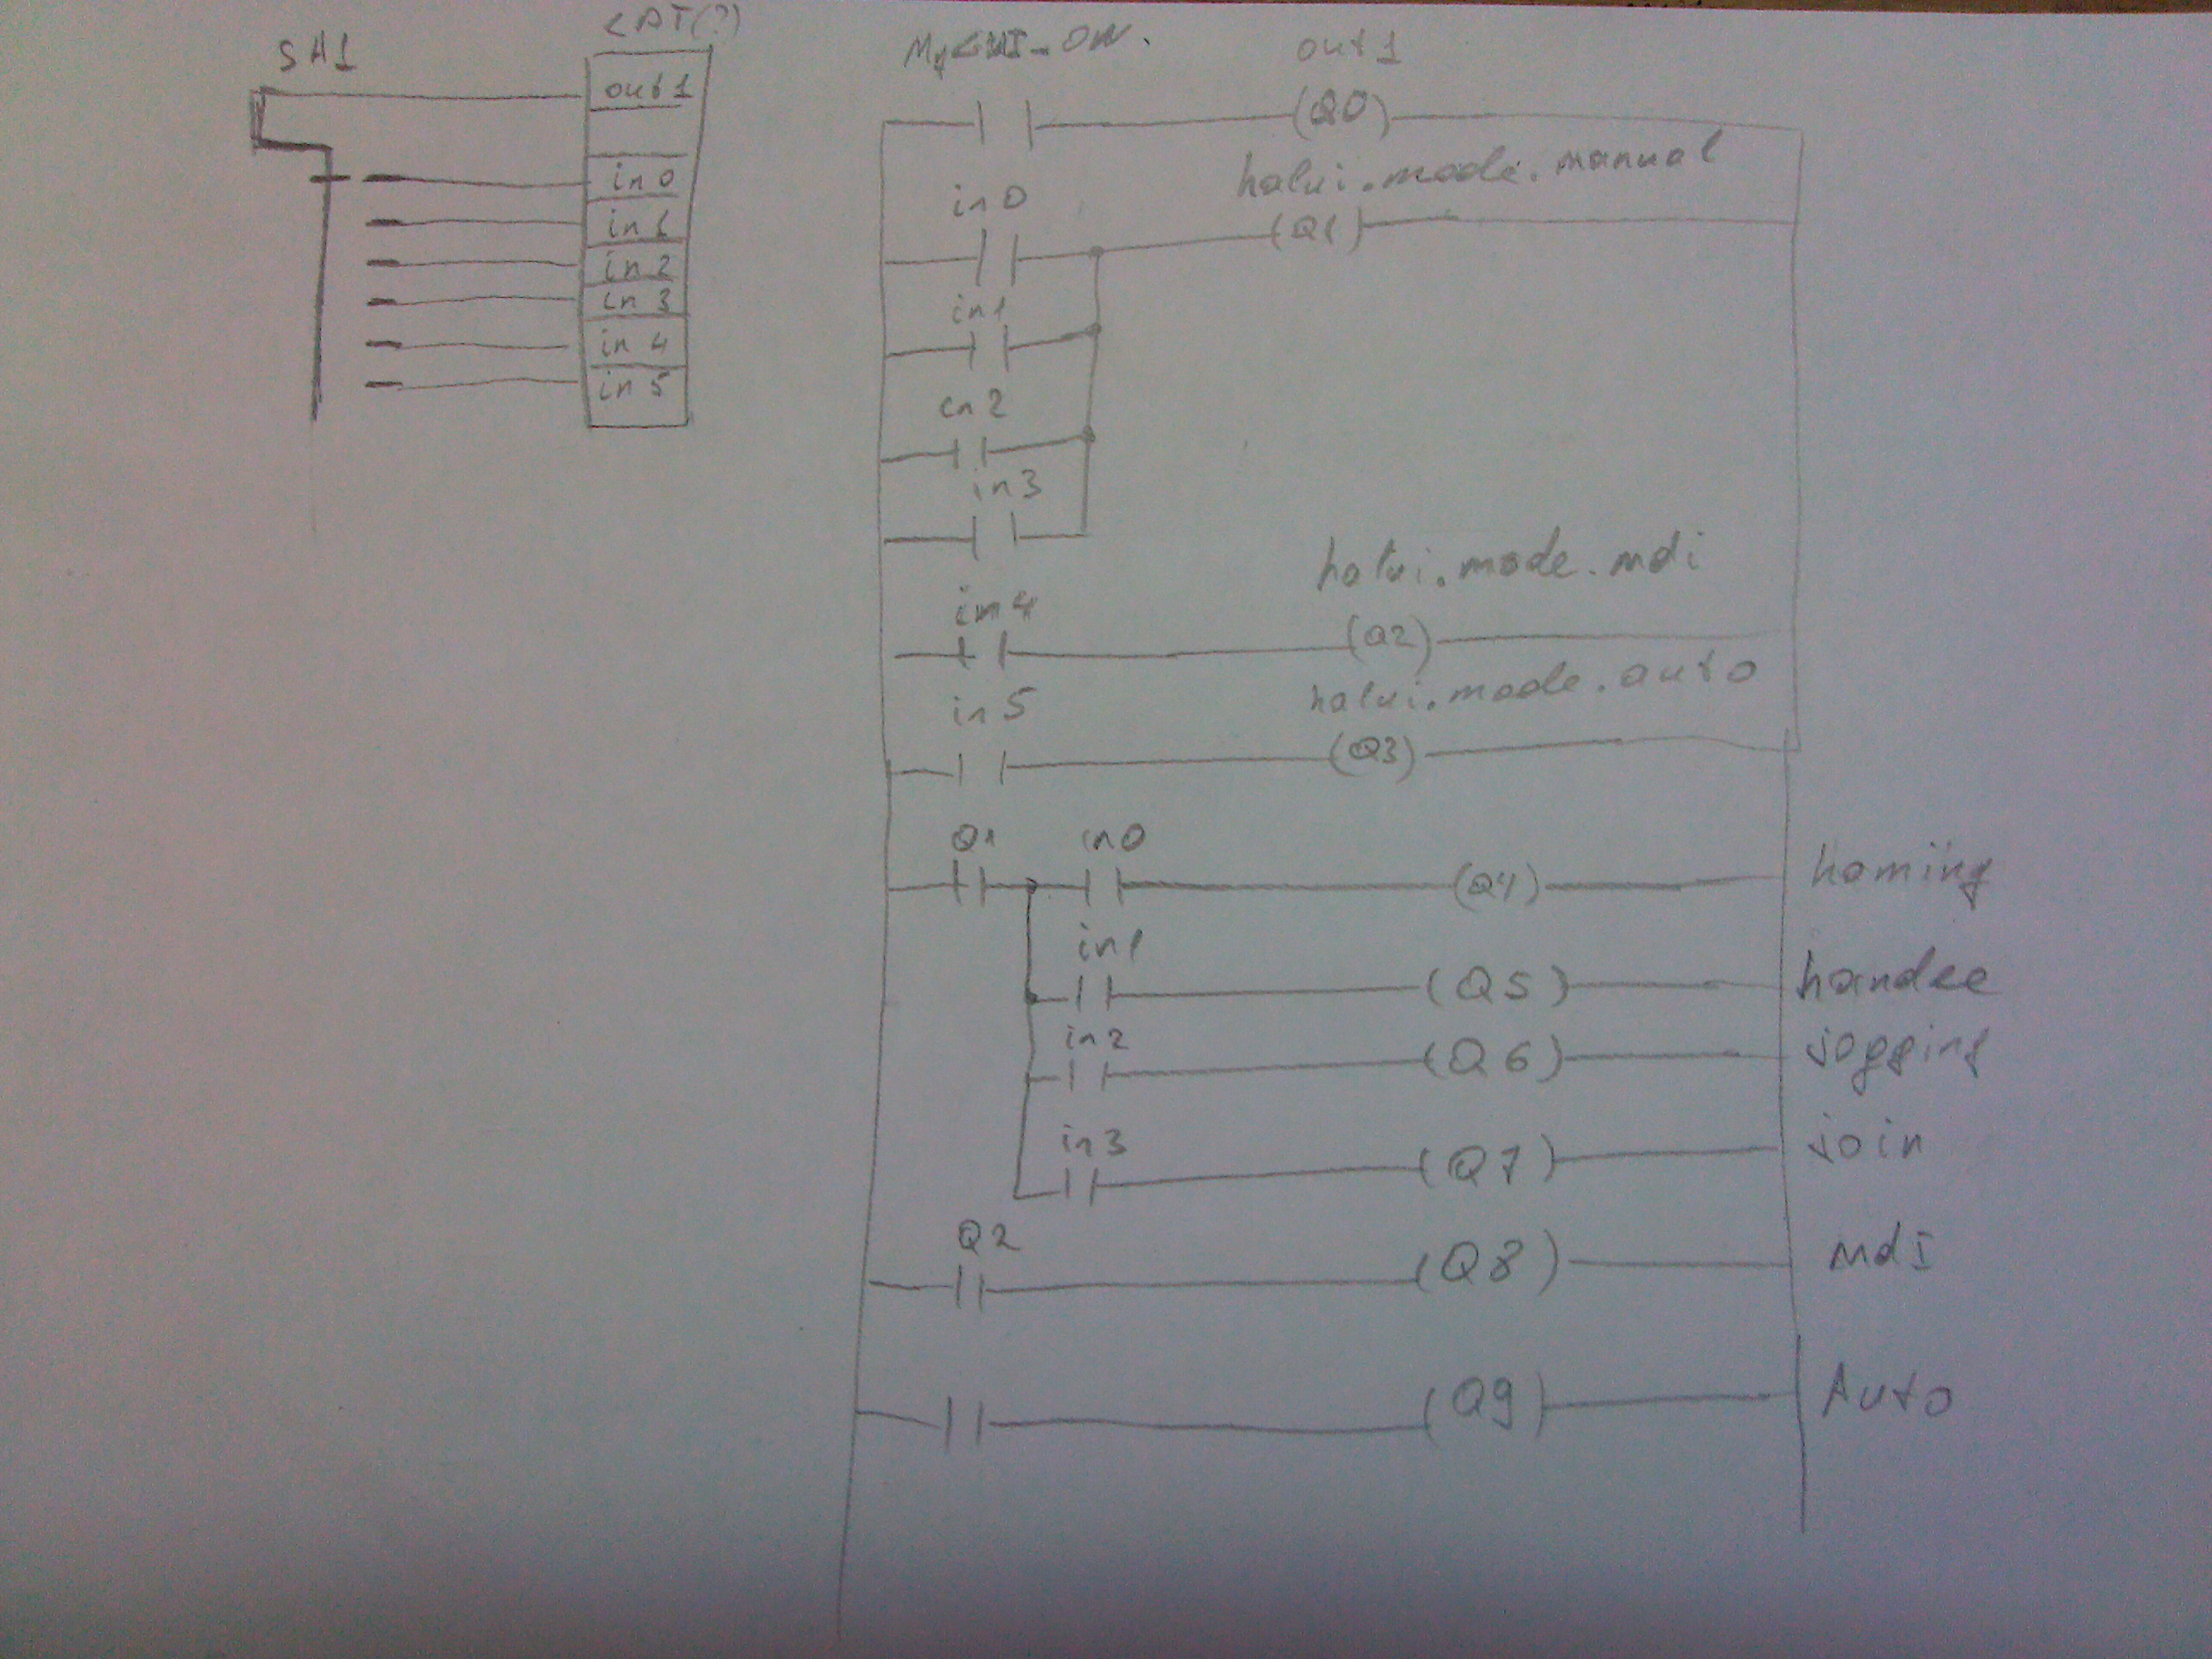 SA1
out1
in 0
in 1
in 2
in 3
in 4
in 5
out1
(Q0)
halui.mode.manual
in 0
(Q1)
in1
in 2
in 3
halui.mode.mdi
in 4
(Q2)
halui.mode.auto
in 5
(Q3)
Q1 in0 (Q4) homing
in1 (Q5) handle
in2 (Q6) jogging
in3 (Q7) join
Q2 (Q8) mdI
(Q9) Auto